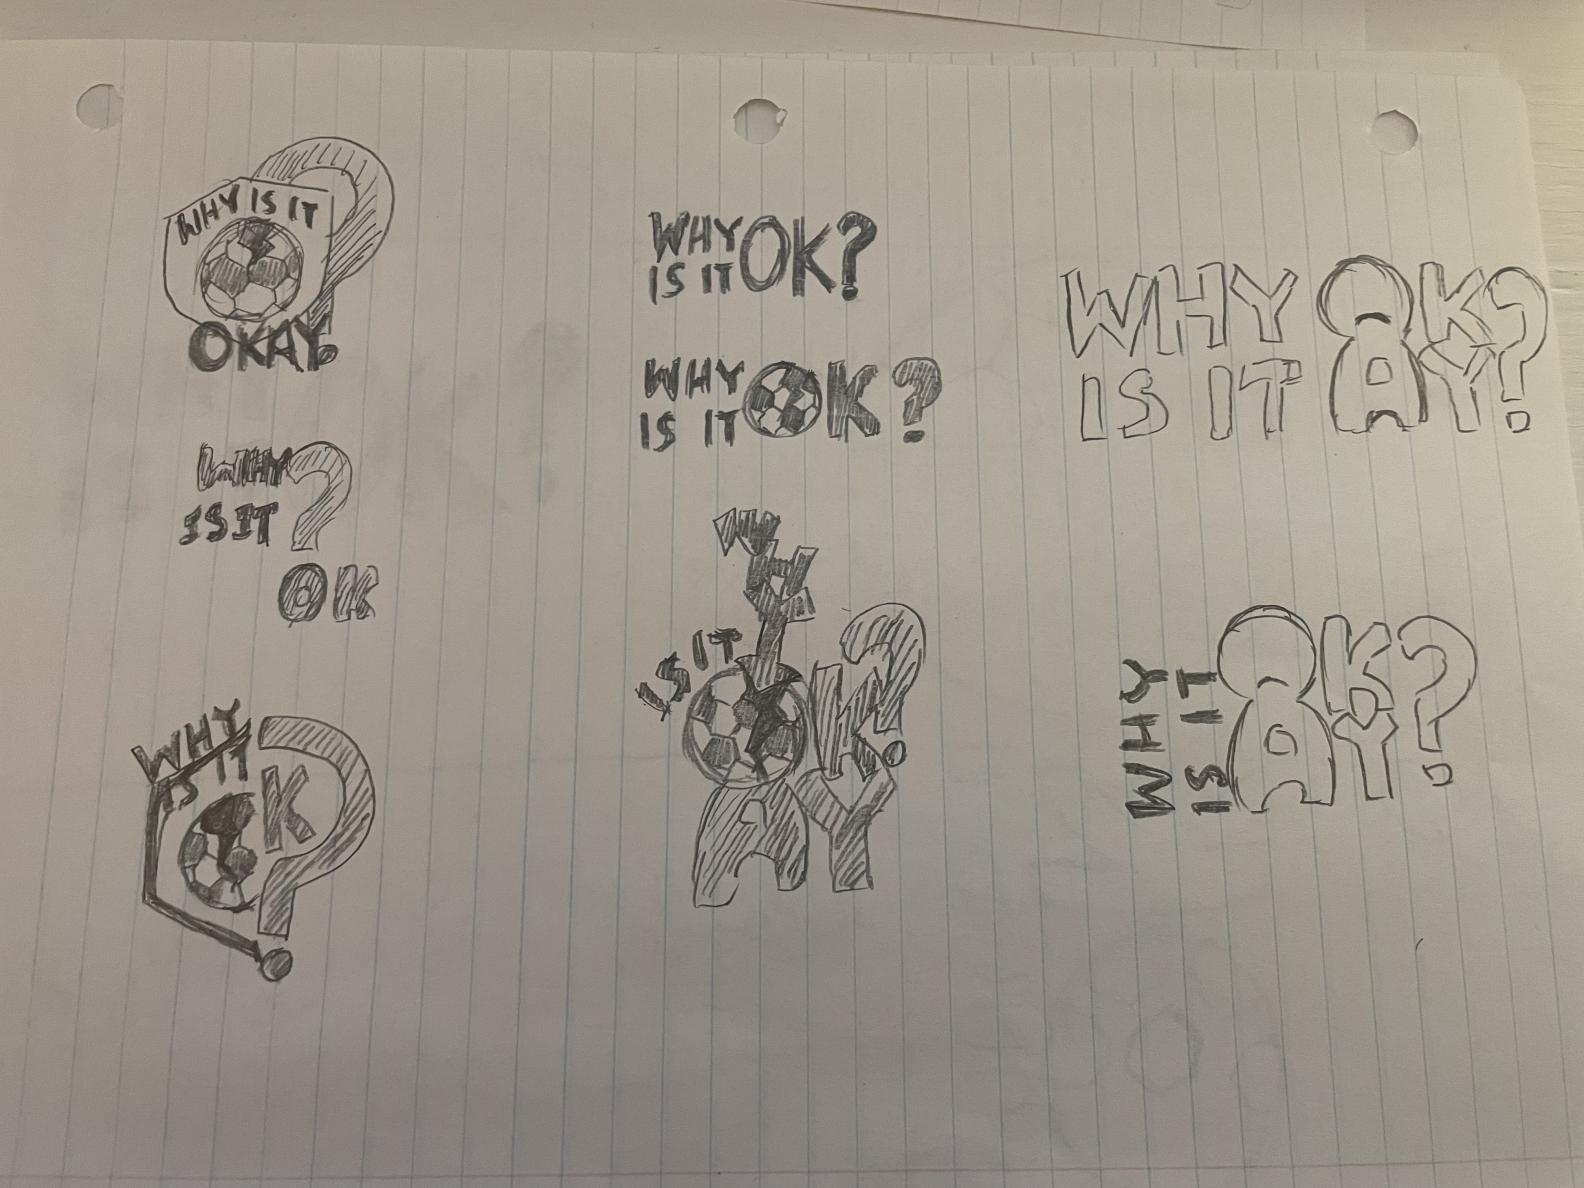 WHY IS IT
OKAY?
WHY?
IS IT
OK
WHY
IS IT
OK?
WHY
IS IT OK?
WHY
IS IT OK?
WHY
IS IT
OK?
AY
WHY OK?
IS IT AY
WHY
IS IT
OK?
AY